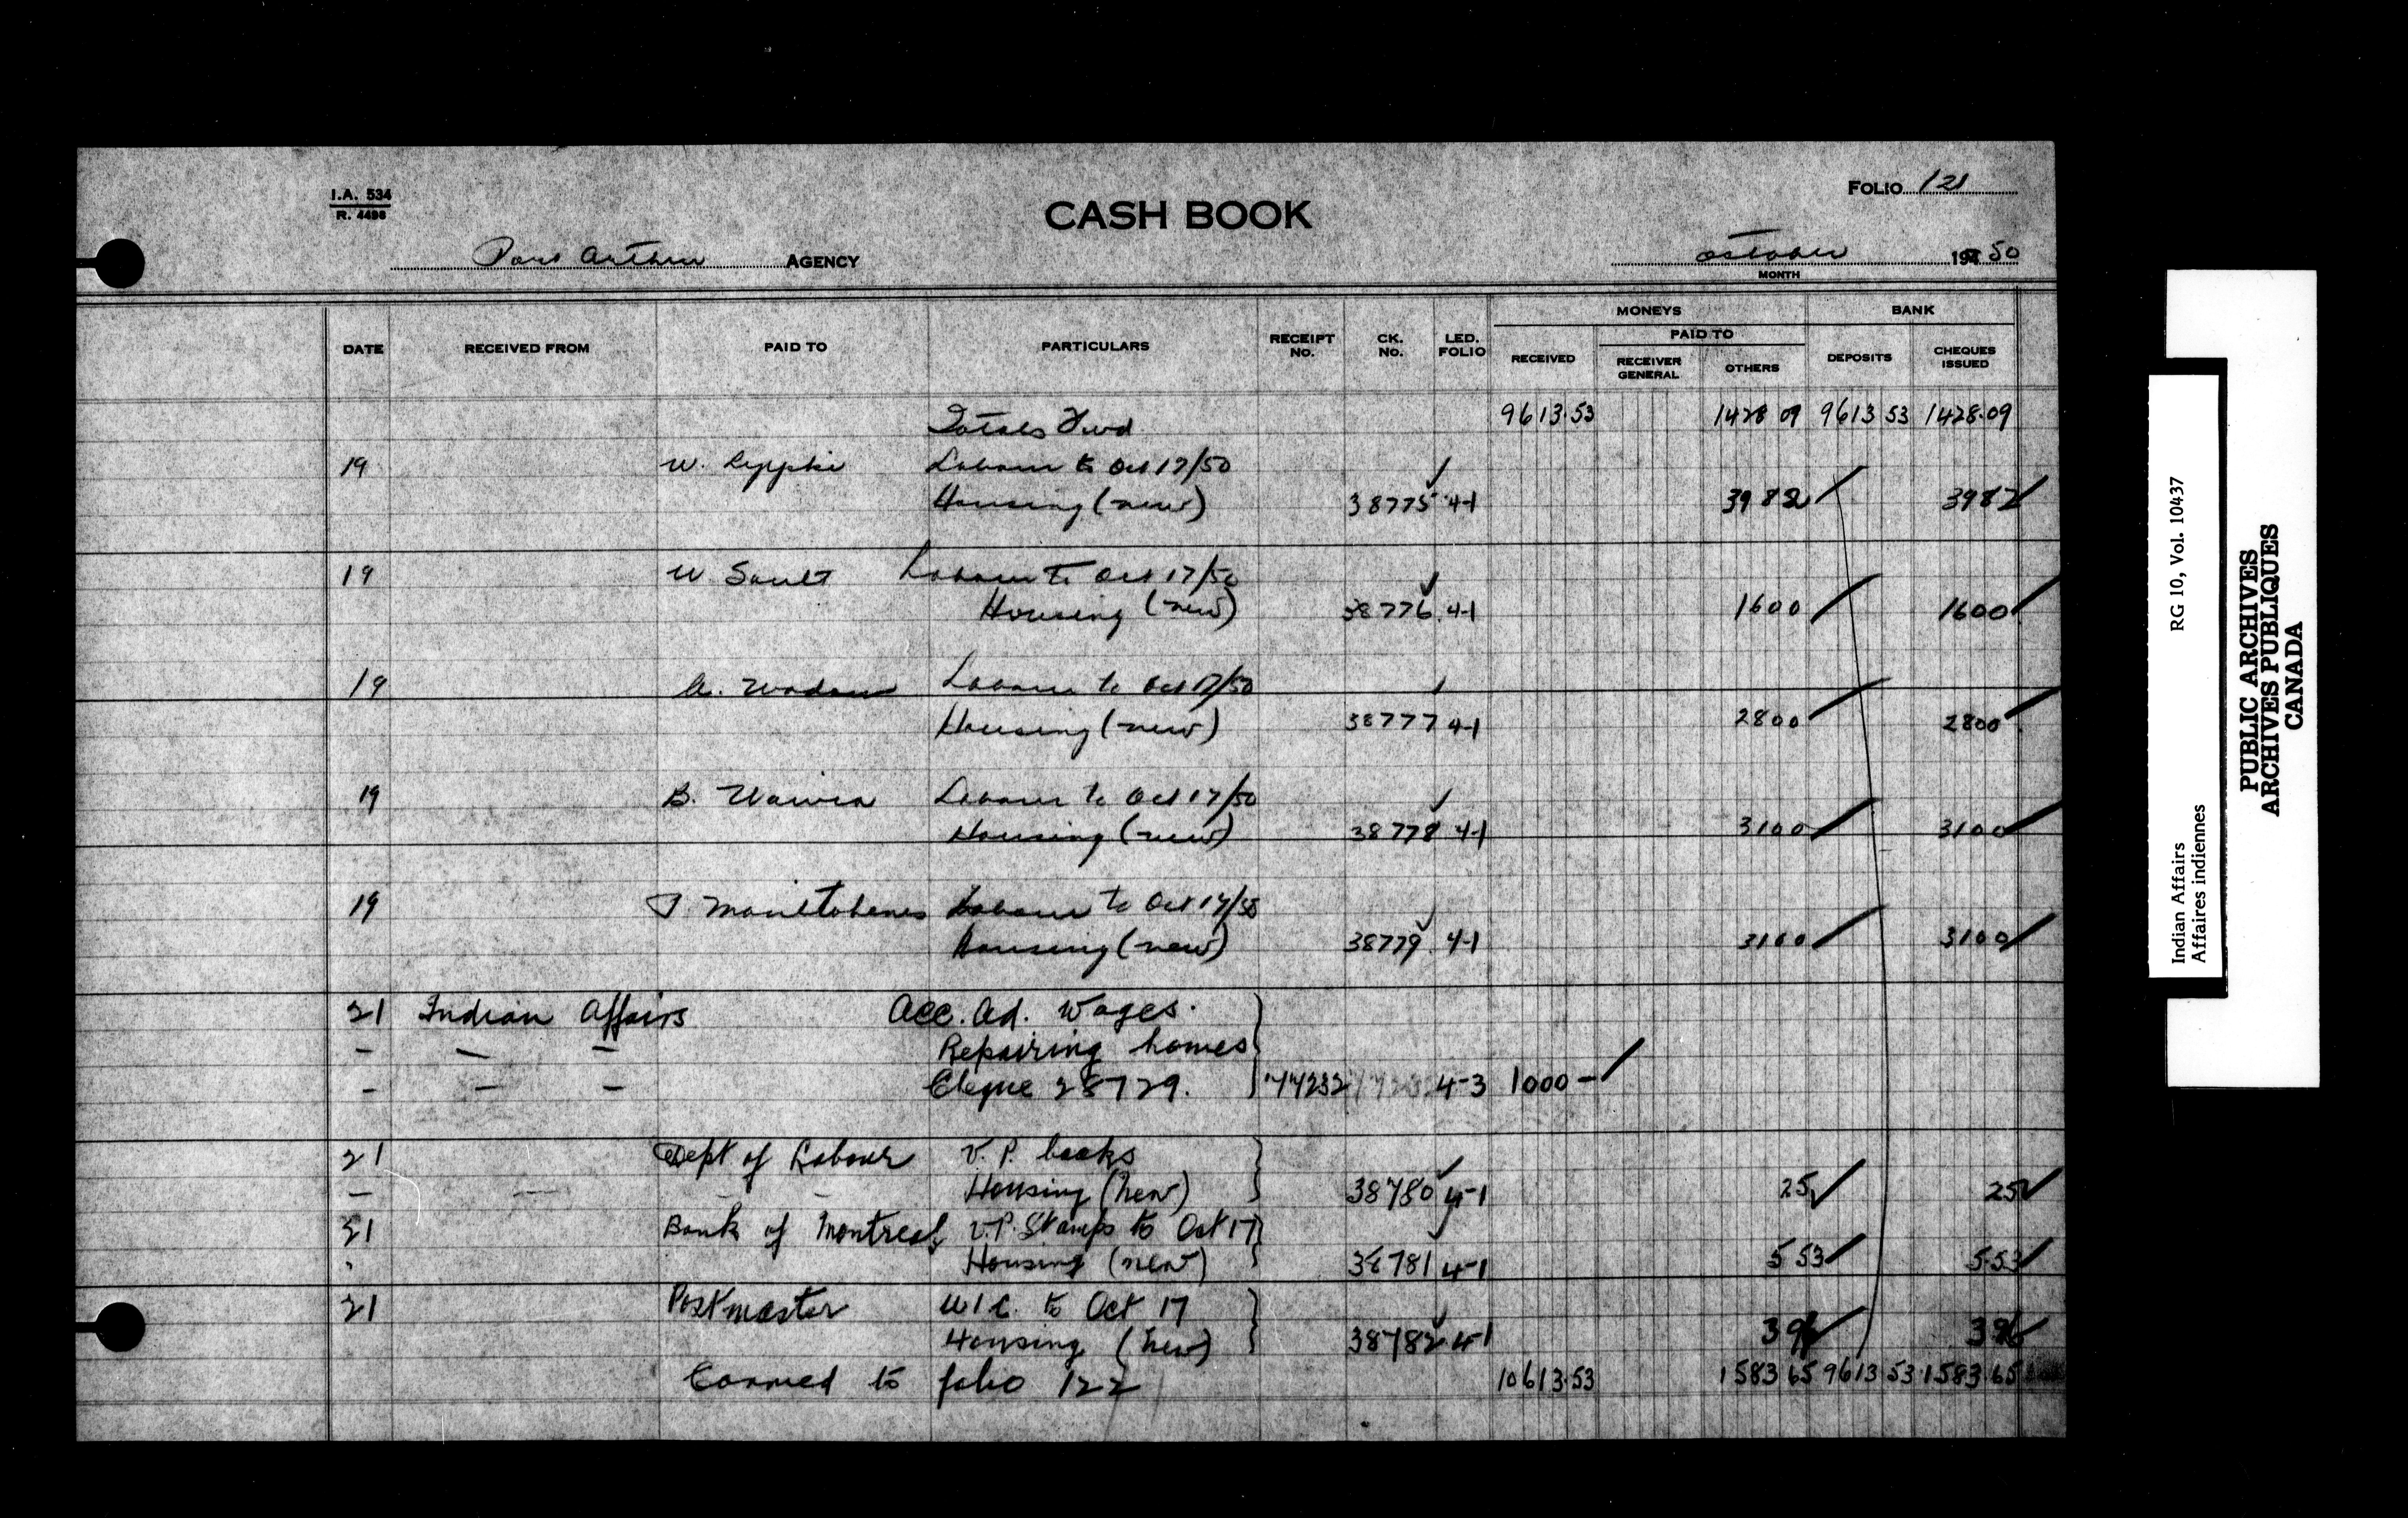 I.A. 534
R. 4498
CASH BOOK
FOLIO 121
Port Arthur AGENCY
October 194 50
MONTH
DATE RECEIVED FROM PAID TO PARTICULARS RECEIPT NO. CK. NO. LED. FOLIO MONEYS BANK
RECEIVED PAID TO DEPOSITS CHEQUES ISSUED
RECEIVER GENERAL OTHERS
Totals Fwd 9613.53 1428 09 9613 53 1428.09
19 W. Labour to Oct 17/50
Housing (new) 38775 4-1 39 82 39 82
19 W Sault Labour to Oct 17/50
Housing (new) 38776 4-1 16 00 16 00
19 Labour to Oct 17/50
Housing (new) 38777 4-1 28 00 28 00
19 B. Labour to Oct 17/50
Housing (new) 38778 4-1 31 00 31 00
19 Labour to Oct 17/50
Housing (new) 38779 4-1 31 00 31 00
21 Indian Affairs Acc. Ad. Wages.
- - - Repairing homes
- - - Cheque 28729. 77232 4-3 1000 -
21 Dept of Labour V.P. books
- - - - Housing (new) 38780 4-1 25 25
21 Bank of Montreal V.P. Stamps to Oct 17
Housing (new) 38781 4-1 5 53 5.53
21 Postmaster U I C. to Oct 17
Housing (new) 38782 4-1 3 96 3 96
Carried to folio 122 10613.53 1583 65 9613.53 1583.65
RG 10, Vol. 10437
Indian Affairs
Affaires indiennes
PUBLIC ARCHIVES
ARCHIVES PUBLIQUES
CANADA